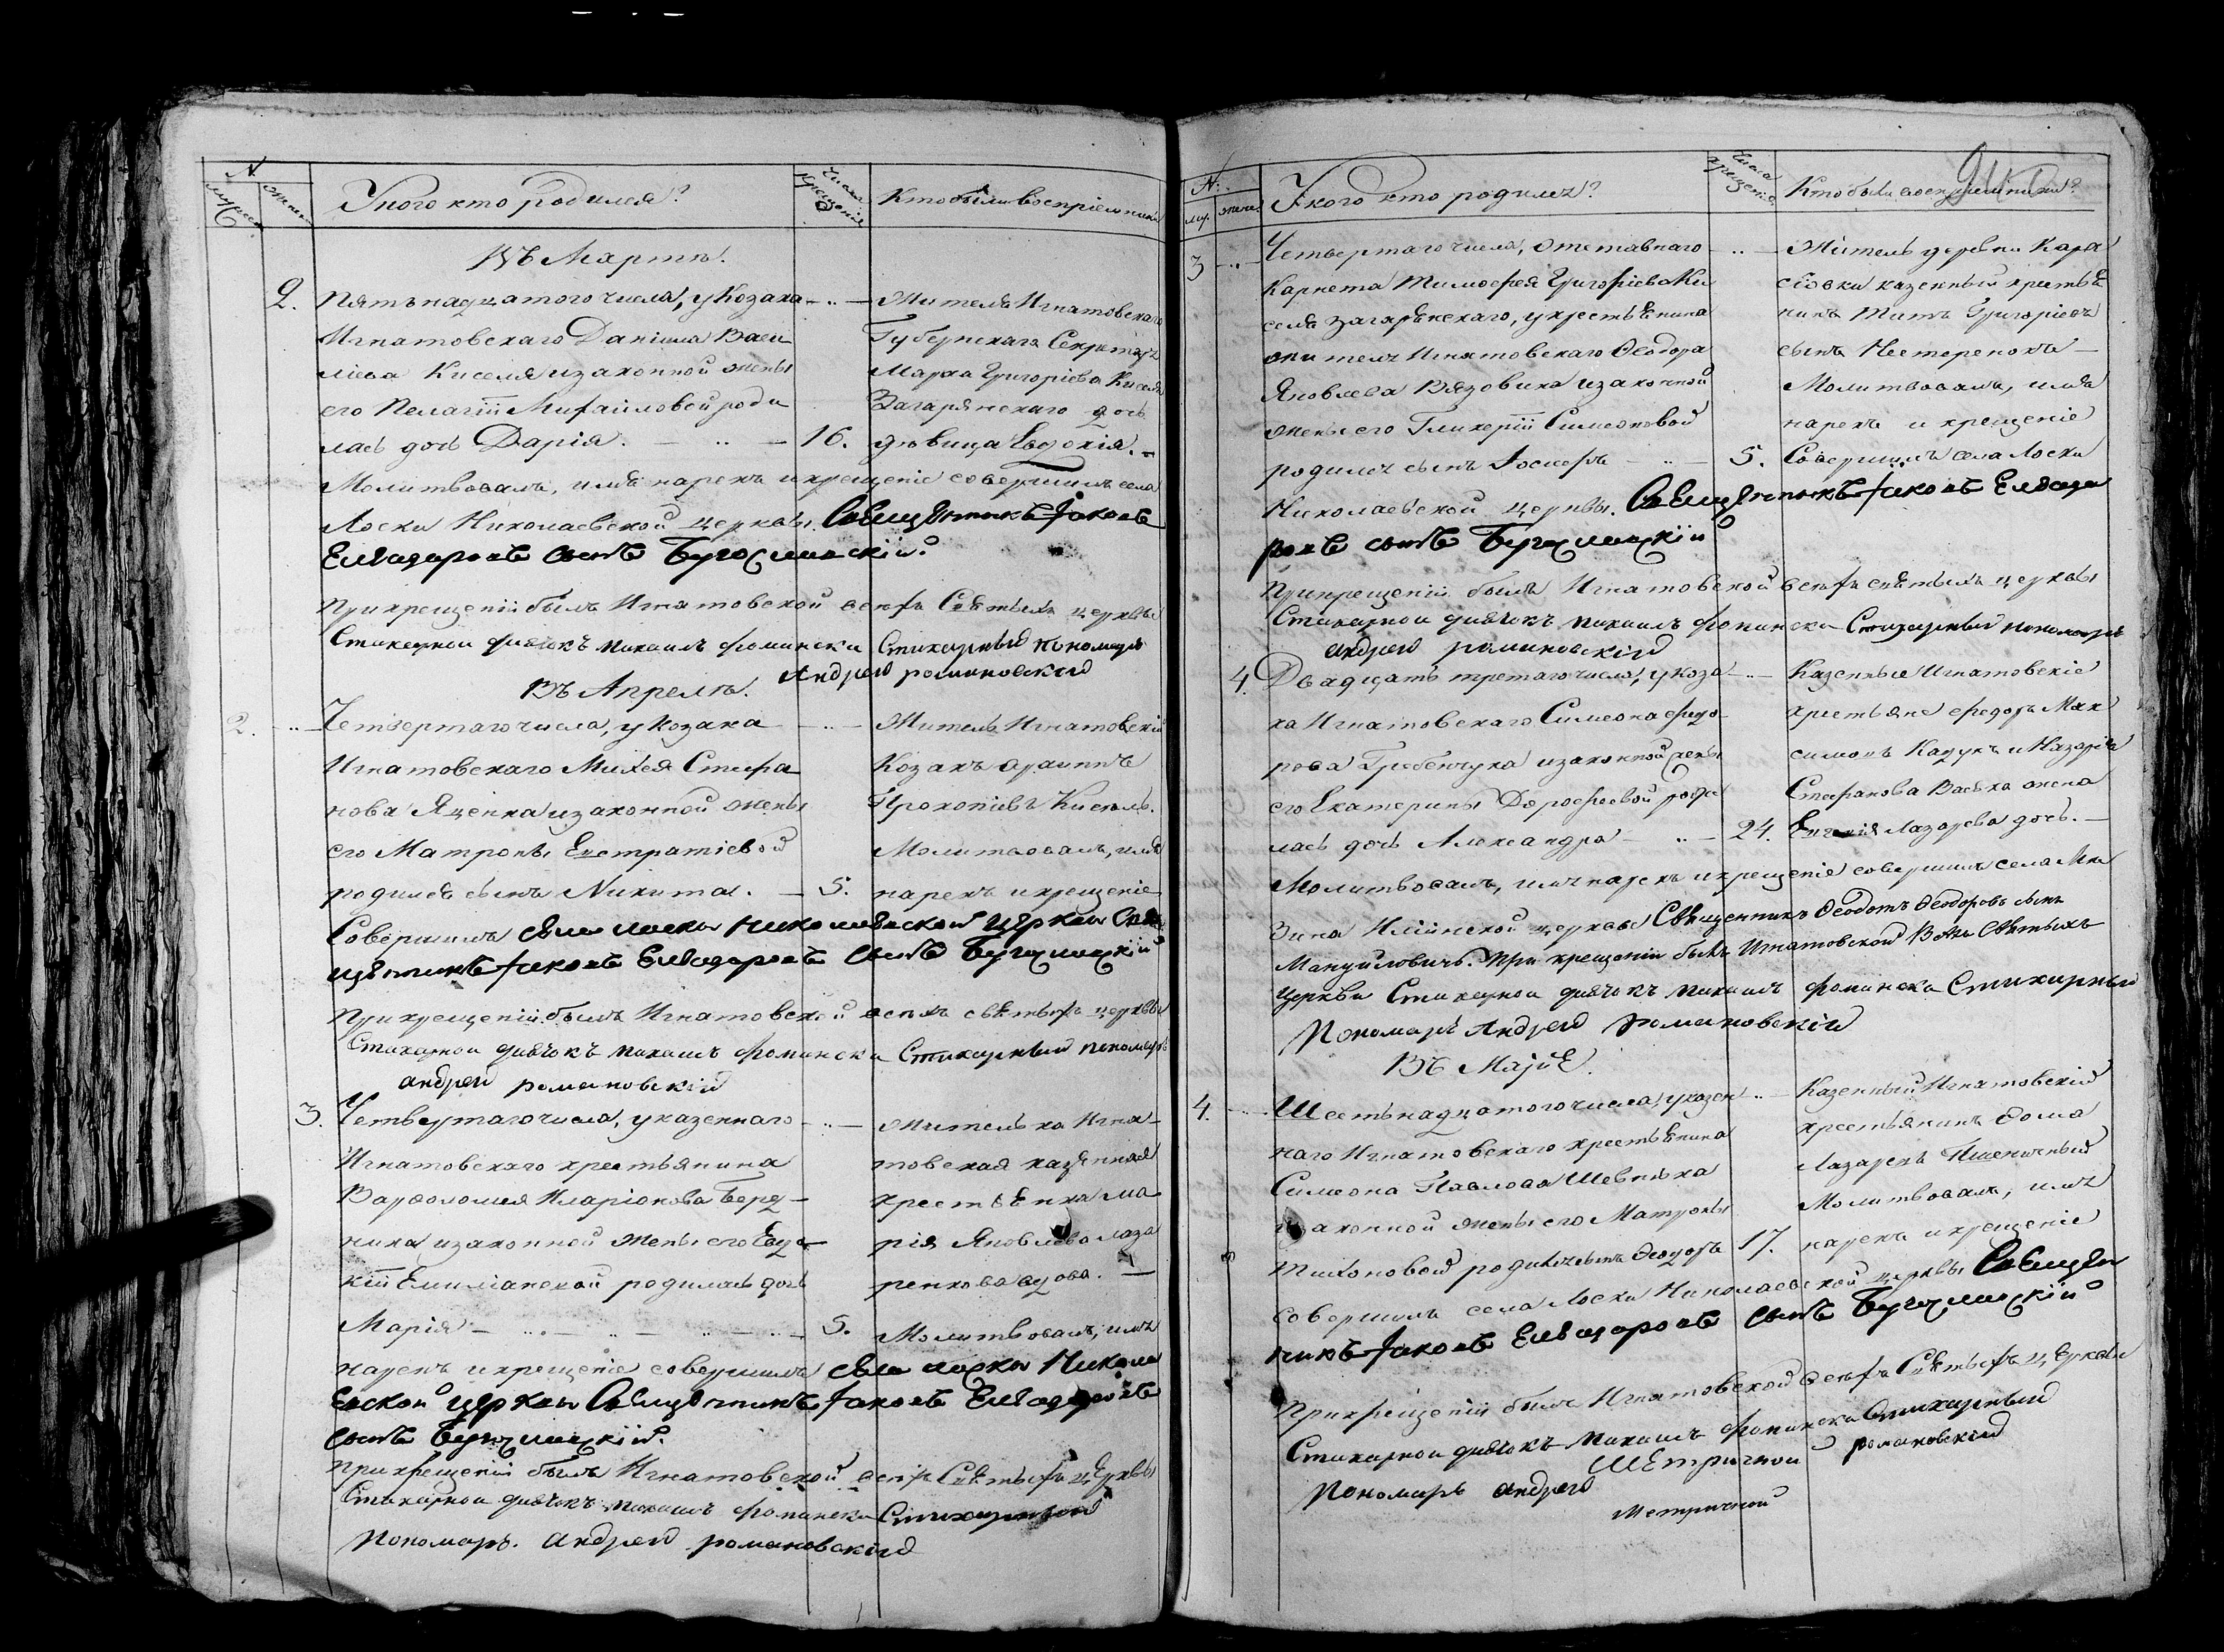 №
мужеск. женск.
У кого кто родился?
Число крещенія
Кто были восприемники
Въ Мартѣ.
2. Пятьнадцатого числа, у Козака
Игнатовскаго Даніила Васи
лiева Киселя изаконной жены
его Пелагіи Михайловой роди
лась дочь Дарія. 16.
Жителя Игнатовскаго
Губернскаго Секретаря
Марка Григоріева Киселя
Загарянскаго дочь
дѣвица Евдокія.
Молитвовалъ, имя нарекъ и крещеніе совершилъ села
Лоски Николаевской церквы Священникъ Іаковъ
Елеазаровъ сынъ
При крещеніи былъ Игнатовской всѣхъ Святыхъ церквы
Стихарной диячокъ Михаилъ Стихарный пономарь
Андрей романовскій
Въ Апрелѣ.
2. Четвертаго числа, у козака
Игнатовскаго Михея Стефа
нова Яценка изаконной жены
его Матроны Евстратіевой
родился сынъ Никита. 5.
Житель Игнатовскій
Козакъ
Прокопіевъ Кисель.
Молитвовалъ, имя
нарекъ и крещеніе
Совершилъ села лоски николаевской церквы Свя
щенникъ Іаковъ Елеазаровъ сынъ
При крещеніи былъ Игнатовской всѣхъ святыхъ церквы
Стихарной диячокъ михаилъ Стихарный пономарь
андрей романовскій
3. Четвертаго числа, у казеннаго
Игнатовскаго крестьянина
Варфоломея Иларіонова Берд
ника изаконной жены его Евдо
кіи Емиліановой родилась дочь
Марія 5.
жителька Игна
товская казенная
крестьянка Ма
рія Яковлева Лаза
ренкова вдова.
Молитвовалъ, имя
нарекъ и крещеніе совершилъ села лоски Никола
евской церквы Священникъ Іаковъ Елеазаровъ
сынъ
При крещеніи былъ Игнатовской всѣхъ Святыхъ церквы
Стихарной диячокъ михаилъ Стихарный
Пономарь. андрей романовскій
№
муж. женс.
У кого кто родился?
Числа крещенія
Кто были восприемники?
3 Четвертаго числа, отставнаго
Карнета Тимофея Григоріева Ки
селя Загарянскаго, у крестьянина
жителя Игнатовскаго Ѳеодора
Яковлева Вязовика изаконной
жены его Гликеріи Симеоновой
родился сынъ Іосифъ 5.
Житель деревни Кара
сѣовки казенный крестья
нинъ Титъ Григоріевъ
сынъ Нестеренокъ
Молитвовалъ, имя
нарекъ и крещеніе
Совершилъ села Лоски
Николаевской церквы. Священникъ Іаковъ Елеаза
ровъ сынъ
При крещеніи былъ Игнатовской всѣхъ святыхъ церквы
Стихарной диячокъ михаилъ Стихарный пономарь
андрей романовскій
4. Двадцать третаго числа, у коза
ка Игнатовскаго Симеона Федо
рова Гребенчука изаконной жены
его Екатерины Дорофеевой роди
лась дочь Александра 24.
Казенные Игнатовскіе
крестьяне Федоръ Мак
симовъ Кацукъ и Назарія
Стефанова Васька жена
Лазарева дочь.
Молитвовалъ, имя нарекъ и крещеніе совершилъ села Мы
зина Иліинской церквы Священникъ Ѳеодотъ Ѳеодоровъ сынъ
Мануйловичъ. При крещеніи былъ Игнатовской Всѣхъ Святыхъ
Церквы Стихарной диячокъ михаилъ Стихарный
Пономарь Андрей Романовскій
Въ Маіѣ.
4. Шестьнадцатого числа, у казен
наго Игнатовскаго крестьянина
Симеона Павлова Шевпяка
изаконной жены его Матроны
Тихоновой родился сынъ Ѳеодоръ 17.
Казенный Игнатовскій
крестьянинъ Ѳома
Лазаревъ Пшеничный
Молитвовалъ, имя
нарекъ и крещеніе
совершилъ села Лоски Николаевской церквы Священ
никъ Іаковъ Елеазаровъ сынъ
При крещеніи былъ Игнатовской всѣхъ Святыхъ церквы
Стихарной диячокъ михаилъ Стихарный
Пономарь андрей романовскій
Метричной
Метричной